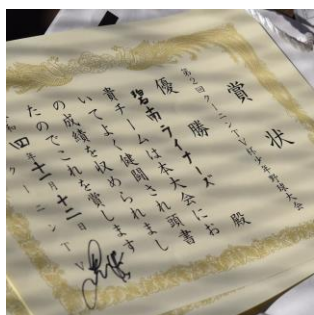 賞状
第2回クーニンTV杯少年野球大会
優勝
碧南ライナーズ殿
貴チームは本大会にお
いてよく健闘され頭書
の成績を収められまし
たのでこれを賞します
四年十一月十二日
クーニンTV